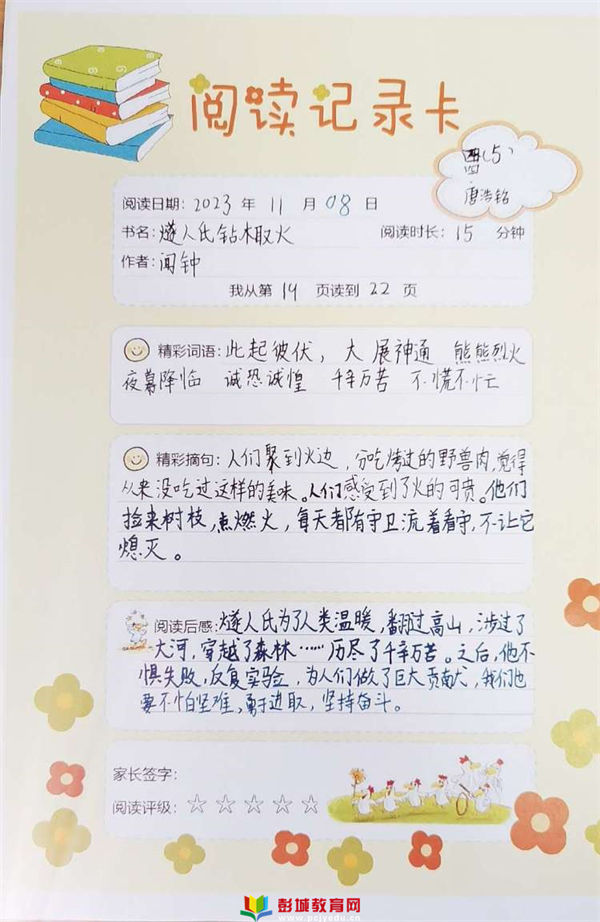 阅读记录卡
四(5)
唐浩铭
阅读日期: 2023 年 11 月 08 日
书名: 燧人氏钻木取火 阅读时长: 15 分钟
作者: 闻钟
我从第 19 页读到 22 页
精彩词语: 此起彼伏, 大展神通 熊熊烈火
夜幕降临 诚恐诚惶 千辛万苦 不慌不忙
精彩摘句: 人们聚到火边,分吃烤过的野兽肉,觉得
从来没吃过这样的美味。人们感受到了火的可贵。他们
捡来树枝,点燃火,每天都有守卫流着看守,不让它
熄灭。
阅读后感: 燧人氏为了人类温暖,翻过高山,涉过了
大河,穿越了森林……历尽了千辛万苦。之后,他不
惧失败,反复实验,为人们做了巨大贡献,我们也
要不怕坚难,勇于进取,坚持奋斗。
家长签字:
阅读评级: ☆ ☆ ☆ ☆ ☆
彭城教育网
www.pcjyedu.cn